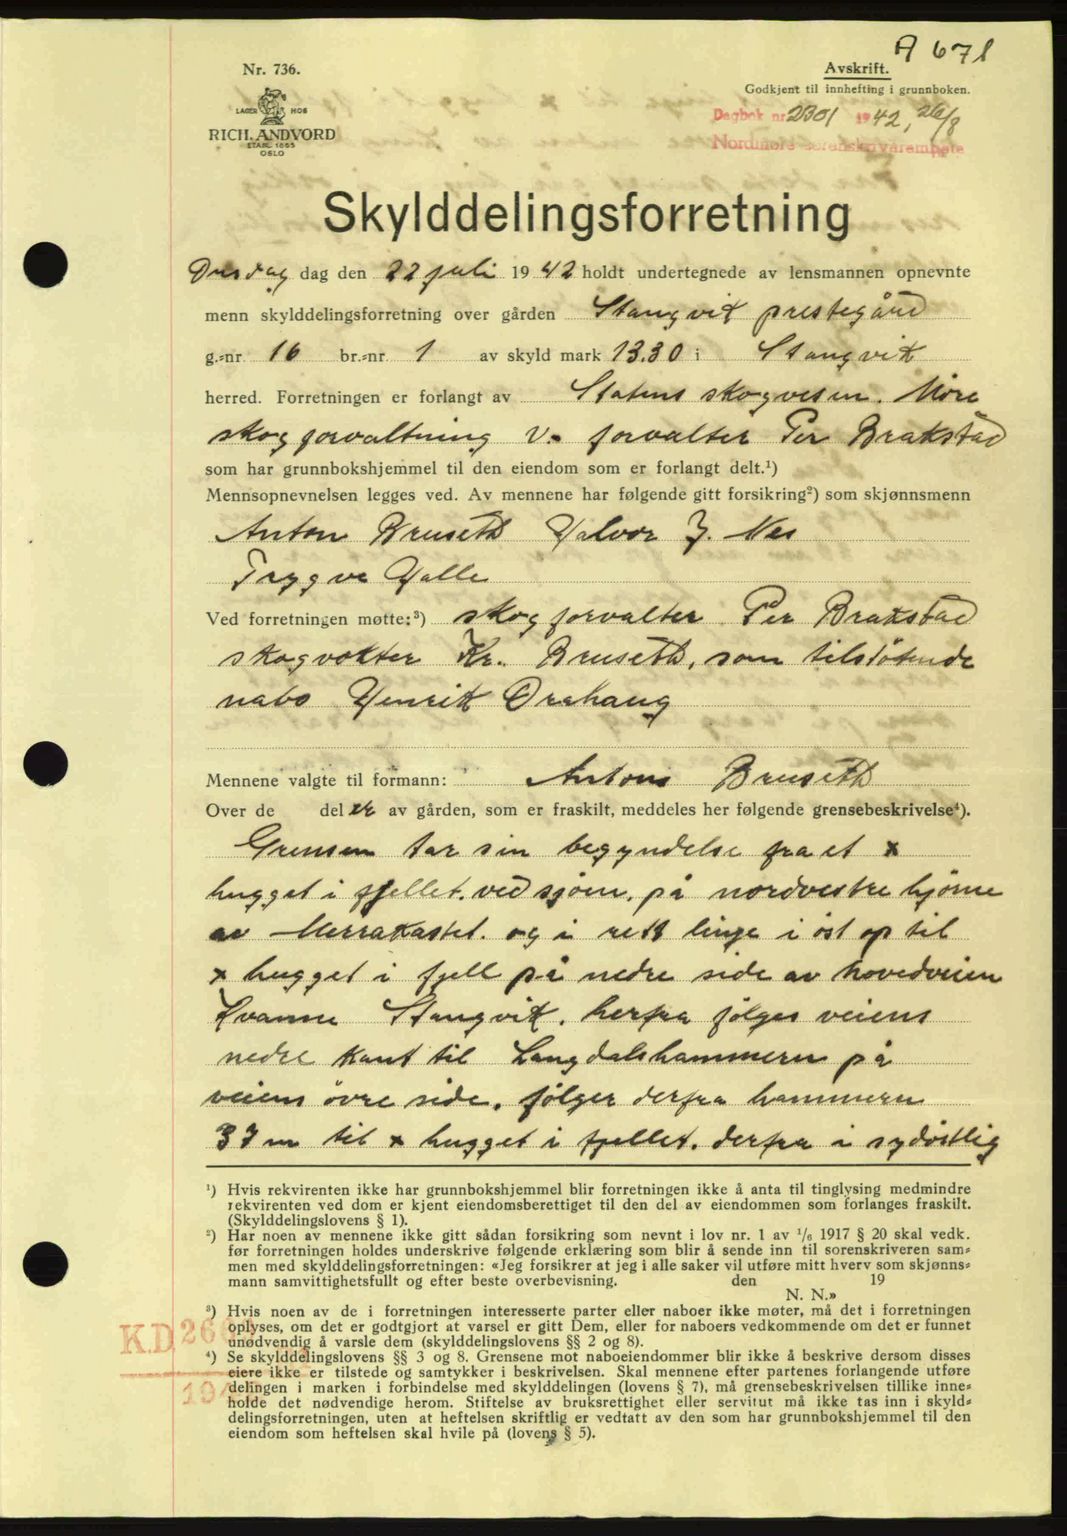 A 671
Nr. 736.
Avskrift.
Godkjent til innhefting i grunnboken.
LAGER HOS
RICH. ANDVORD
ETABL. 1865
OSLO
Dagbok nr. 2301 1942, 26/8
Nordmøre sorenskriverembete
Skylddelingsforretning
Onsdag dag den 22 juli 1942 holdt undertegnede av lensmannen opnevnte
menn skylddelingsforretning over gården Stangvik prestegård
g.-nr 16 br.-nr 1 av skyld mark 13.30 i Stangvik
herred. Forretningen er forlangt av Statens skogvesen. Møre
skogforvaltning v. forvalter Per Brakstad
som har grunnbokshjemmel til den eiendom som er forlangt delt.¹)
Mennsopnevnelsen legges ved. Av mennene har følgende gitt forsikring²) som skjønnsmenn
Anton Bruseth Halvor J. Nes
Trygve Halle
Ved forretningen møtte:³) skogforvalter Per Brakstad
skogvokter Kr. Bruseth, som tilstøtende
nabo Henrik Ørahaug
Mennene valgte til formann: Anton Bruseth
Over de del er av gården, som er fraskilt, meddeles her følgende grensebeskrivelse⁴).
Grensen tar sin begyndelse fra et x
hugget i fjellet ved sjøen, på nordvestre hjørne
av Merrakastet. og i rett linje i øst op til
x hugget i fjell på nedre side av hovedveien
Kvanne Stangvik, herfra følges veiens
nedre kant til Langdalshammeren på
veiens övre side. følger derfra hammeren
37 m til x hugget i fjellet. derfra i sydöstlig
¹) Hvis rekvirenten ikke har grunnbokshjemmel blir forretningen ikke å anta til tinglysing medmindre
rekvirenten ved dom er kjent eiendomsberettiget til den del av eiendommen som forlanges fraskilt.
(Skylddelingslovens § 1).
²) Har noen av mennene ikke gitt sådan forsikring som nevnt i lov nr. 1 av ¹/₆ 1917 § 20 skal vedk.
før forretningen holdes underskrive følgende erklæring som blir å sende inn til sorenskriveren sam-
men med skylddelingsforretningen: «Jeg forsikrer at jeg i alle saker vil utføre mitt hverv som skjønns-
mann samvittighetsfullt og efter beste overbevisning. den 19
N. N.»
³) Hvis noen av de i forretningen interesserte parter eller naboer ikke møter, må det i forretningen
oplyses, om det er godtgjort at varsel er gitt Dem, eller for naboers vedkommende om det er funnet
unødvendig å varsle dem (skylddelingslovens §§ 2 og 8).
⁴) Se skylddelingslovens §§ 3 og 8. Grensene mot naboeiendommer blir ikke å beskrive dersom disses
eiere ikke er tilstede og samtykker i beskrivelsen. Skal mennene efter partenes forlangende utføre
delingen i marken i forbindelse med skylddelingen (lovens § 7), må grensebeskrivelsen tillike inne-
holde det nødvendige herom. Stiftelse av bruksrettighet eller servitut må ikke tas inn i skyld-
delingsforretningen, uten at heftelsen skriftlig er vedtatt av den som har grunnbokshjemmel til den
eiendom som heftelsen skal hvile på (lovens § 5).
K.D.